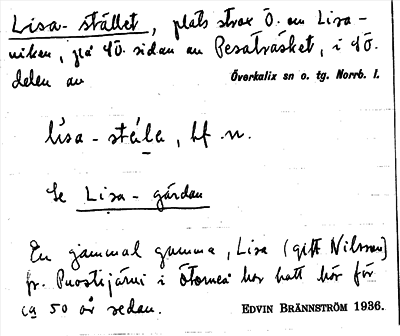 Lisa-stället, plats strax Ö. om Lisa-
viken, på NÖ. sidan av Pesaträsket, i NÖ.
delen av Överkalix sn o. tg. Norrb. l.
lisa-stäla, bf. n.
Se Lisa-gårdan
En gammal gumma, Lisa (gift Nilsson)
fr. Puostijärvi i Ötorneå har haft hör för
ca 50 år sedan. EDVIN BRÄNNSTRÖM 1936.